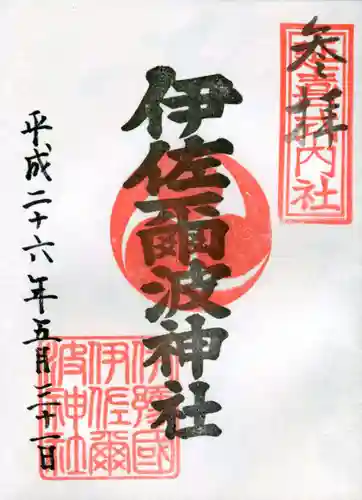 参拝
延喜式内社
伊佐爾波神社
伊豫國
伊佐爾
波神社
平成二十六年五月二十一日